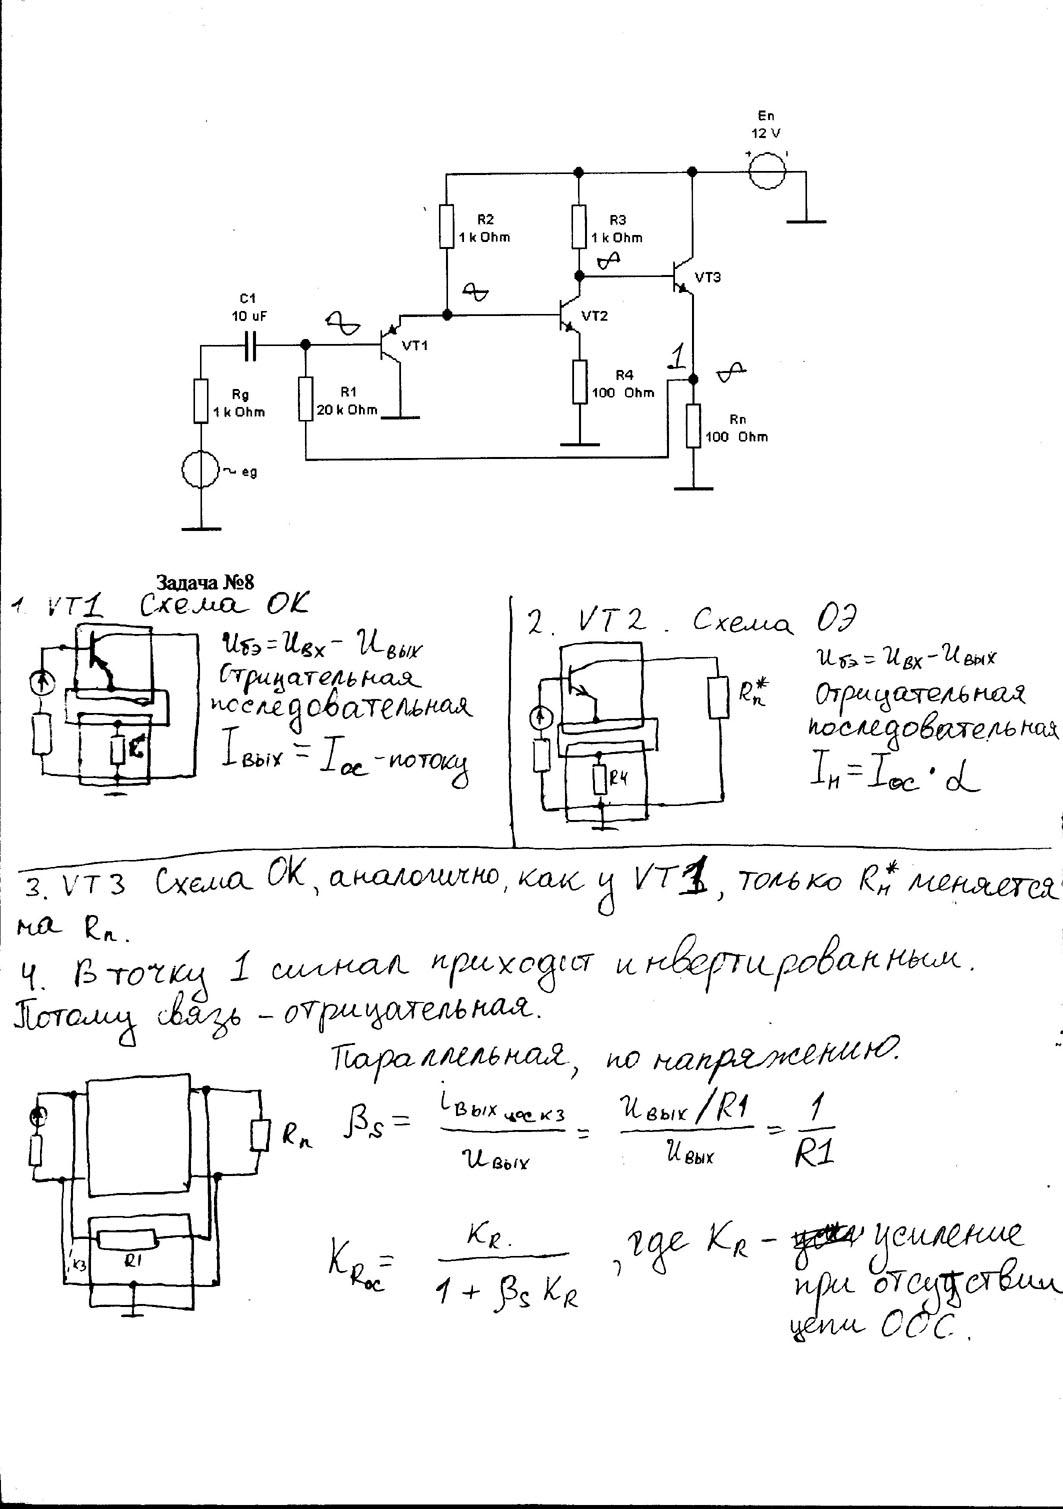 En
12 V
R2
1 k Ohm
R3
1 k Ohm
VT3
C1
10 uF
VT2
VT1
1
R4
100 Ohm
Rg
1 k Ohm
R1
20 k Ohm
Rn
100 Ohm
~ eg
Задача №8
1. VT1 Схема ОК
Uбэ = Uвх - Uвых
Отрицательная
последовательная
Iвых = Iос - потоку
2. VT2. Схема ОЭ
Uбэ = Uвх - Uвых
Rn*
Отрицательная
последовательная
R4
Iн = Iос · α
3. VT3 Схема ОК, аналогично, как у VT1, только Rн* меняется
на Rn.
4. В точку 1 сигнал приходит инвертированным.
Потому связь - отрицательная.
Параллельная, по напряжению.
Rn
βs = iвых цос кз / Uвых = Uвых/R1 / Uвых = 1 / R1
R1
iкз
KRос = KR. / 1 + βs KR , где KR - усиление
при отсутствии
цепи ООС.